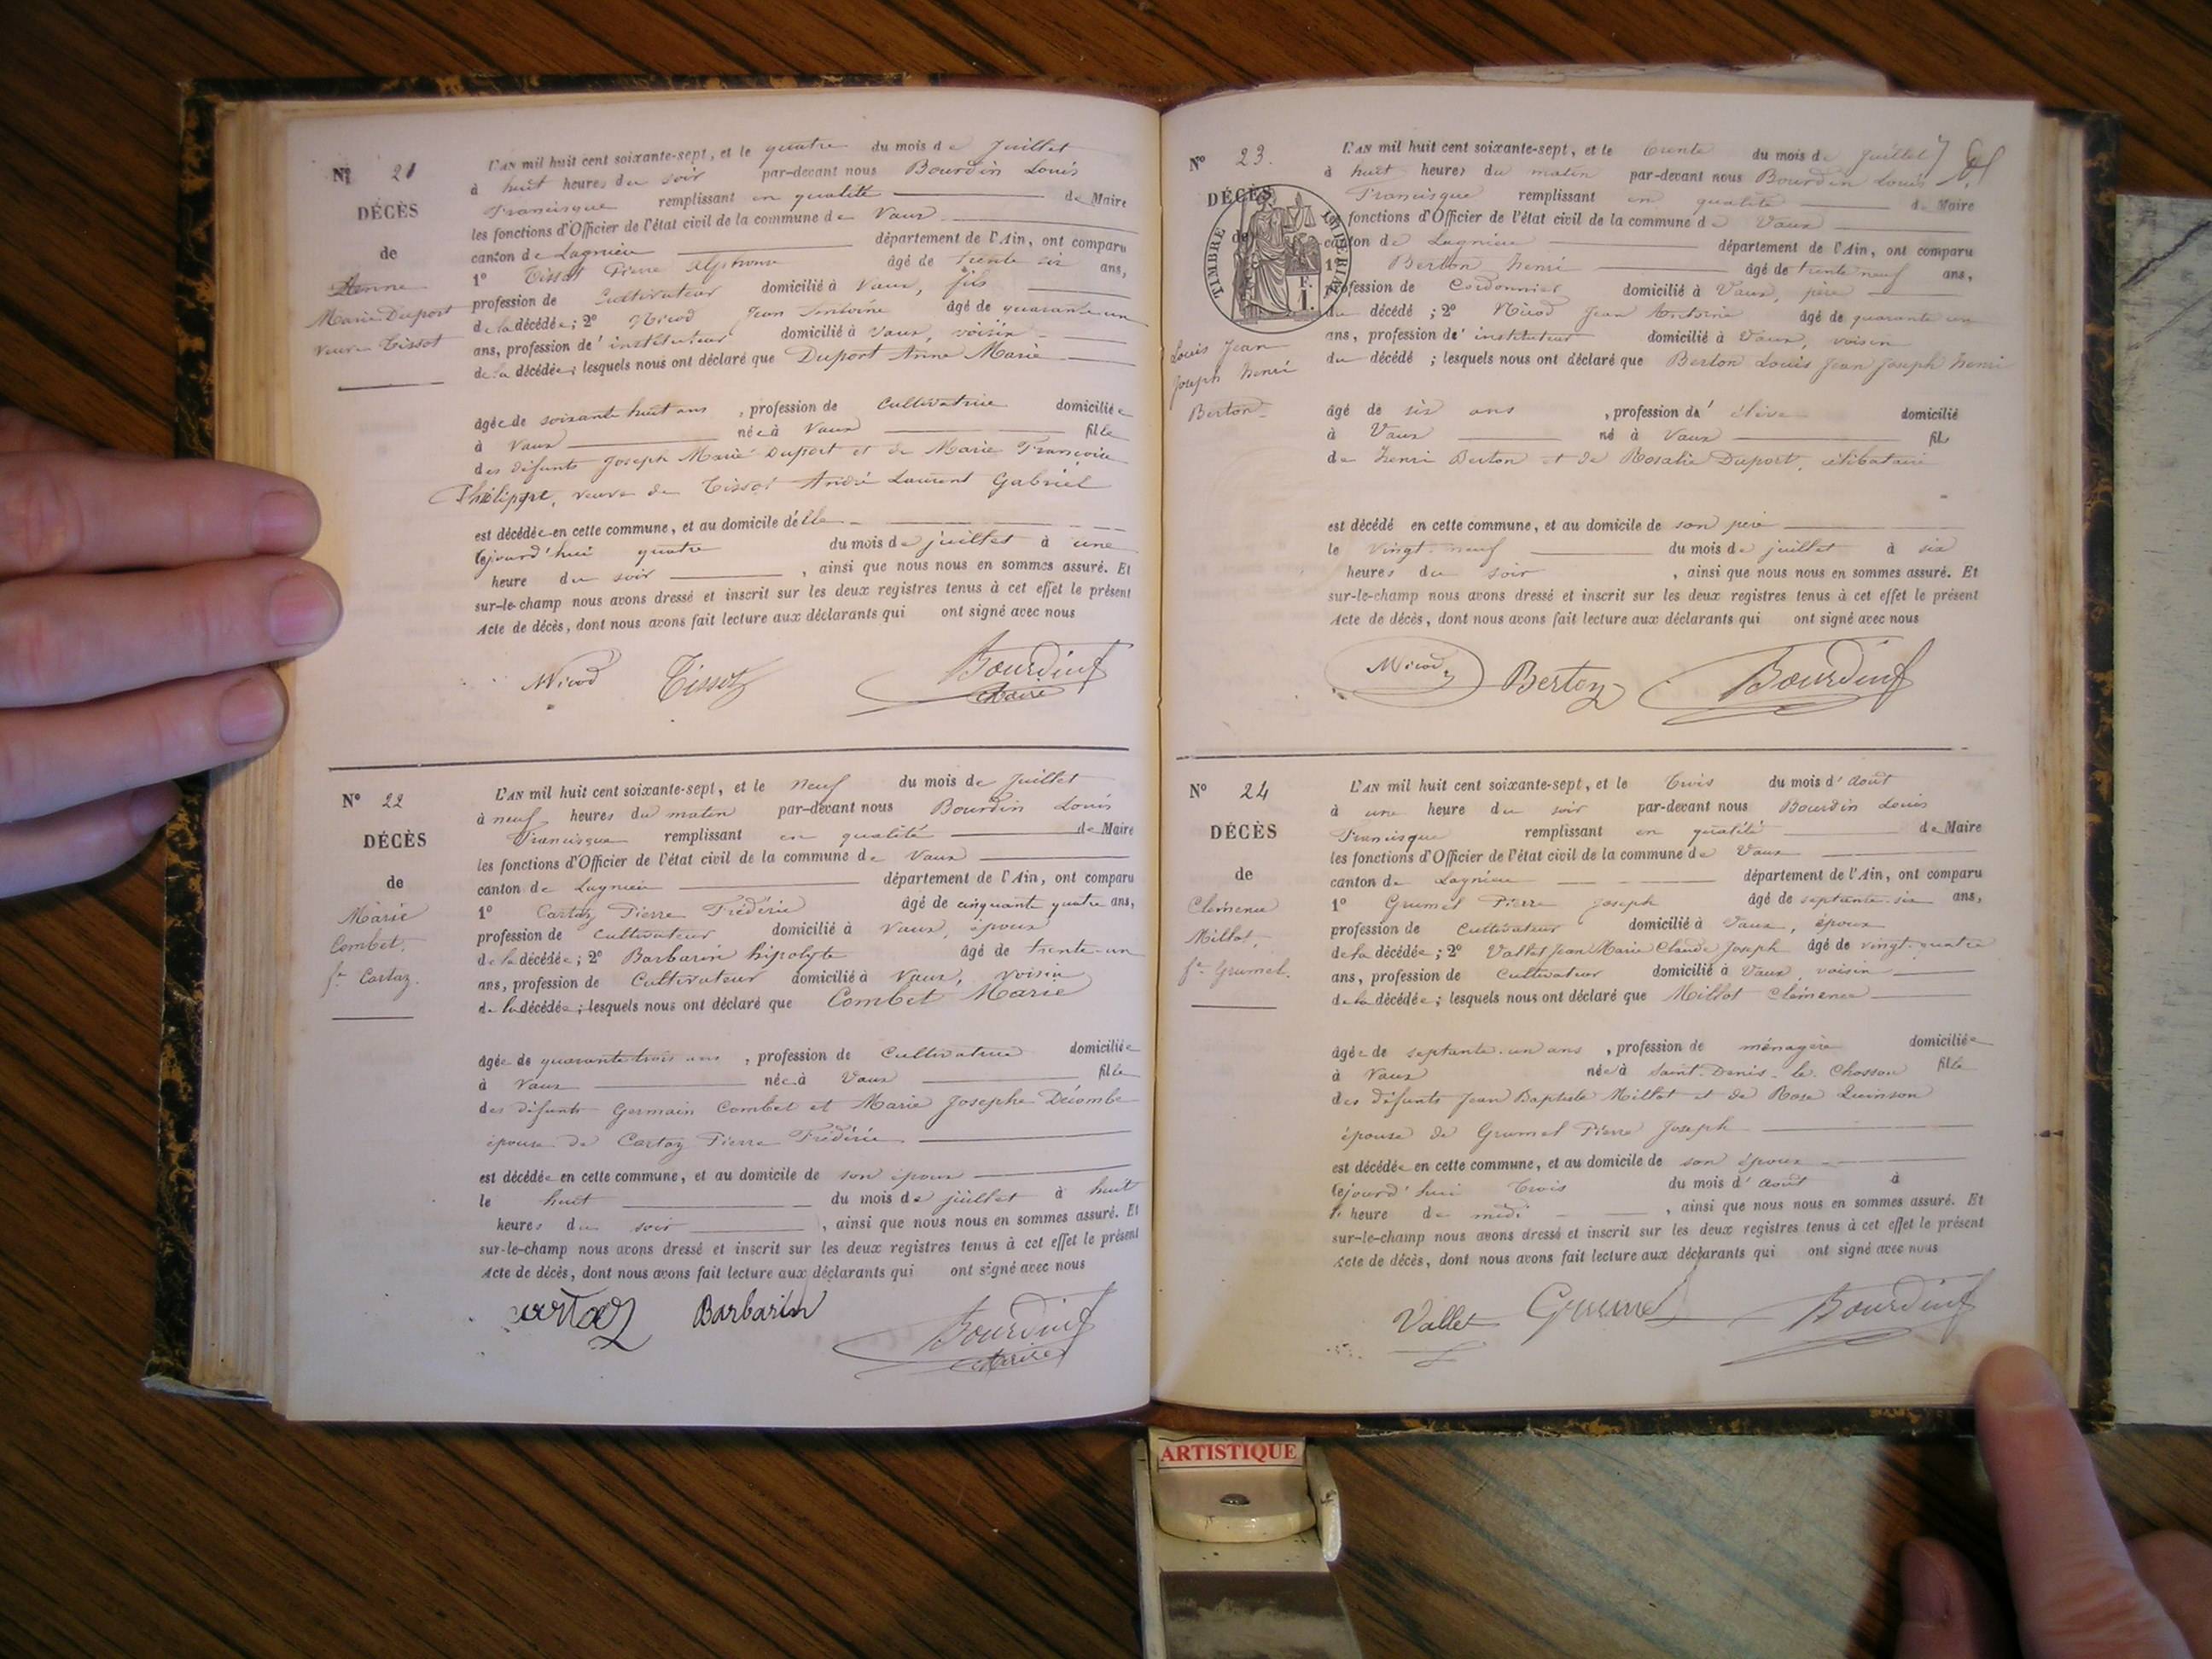 N° 21
DÉCÈS
de
Anne
Marie Duport
veuve Tissot
L'AN mil huit cent soixante-sept, et le quatre du mois de Juillet
à huit heures du soir par-devant nous Bourdin Louis
Francisque remplissant en qualité de Maire
les fonctions d'Officier de l'état civil de la commune de Vaux
canton de Lagnieu département de l'Ain, ont comparu
1° Tissot Pierre Alphonse âgé de trente six ans,
profession de Cultivateur domicilié à Vaux, fils
de la décédée; 2° Nicod Jean Antoine âgé de quarante un
ans, profession d'instituteur domicilié à Vaux, voisin
de la décédée; lesquels nous ont déclaré que Duport Anne Marie
âgée de soixante huit ans, profession de Cultivatrice domiciliée
à Vaux née à Vaux fille
des défunts Joseph Marie Duport et de Marie Françoise
Philippe, veuve de Tissot André Laurent Gabriel
est décédée en cette commune, et au domicile d'elle
cejourd'hui quatre du mois de juillet à une
heure du soir, ainsi que nous nous en sommes assuré. Et
sur-le-champ nous avons dressé et inscrit sur les deux registres tenus à cet effet le présent
Acte de décès, dont nous avons fait lecture aux déclarants qui ont signé avec nous
Nicod Tissot Bourdin
Maire
N° 22
DÉCÈS
de
Marie
Combet.
fe Cartaz.
L'AN mil huit cent soixante-sept, et le neuf du mois de Juillet
à neuf heures du matin par-devant nous Bourdin Louis
Francisque remplissant en qualité de Maire
les fonctions d'Officier de l'état civil de la commune de Vaux
canton de Lagnieu département de l'Ain, ont comparu
1° Cartaz Pierre Frédéric âgé de cinquante quatre ans,
profession de Cultivateur domicilié à Vaux, époux
de la décédée; 2° Barbarin hipolyte âgé de trente un
ans, profession de Cultivateur domicilié à Vaux, voisin
de la décédée; lesquels nous ont déclaré que Combet Marie
âgée de quarante trois ans, profession de Cultivatrice domiciliée
à Vaux née à Vaux fille
des défunts Germain Combet et Marie Josephe Décombe
épouse de Cartaz Pierre Frédéric
est décédée en cette commune, et au domicile de son époux
le huit du mois de juillet à huit
heures du soir, ainsi que nous nous en sommes assuré. Et
sur-le-champ nous avons dressé et inscrit sur les deux registres tenus à cet effet le présent
Acte de décès, dont nous avons fait lecture aux déclarants qui ont signé avec nous
Cartaz Barbarin Bourdin
Maire
N° 23.
DÉCÈS
de
TIMBRE IMPERIAL
F.
1.
Louis Jean
Joseph Henri
Berton
L'AN mil huit cent soixante-sept, et le trente du mois de Juillet
à huit heures du matin par-devant nous Bourdin Louis
Francisque remplissant en qualité de Maire
les fonctions d'Officier de l'état civil de la commune de Vaux
canton de Lagnieu département de l'Ain, ont comparu
1° Berton Henri âgé de trente neuf ans,
profession de Cordonnier domicilié à Vaux, père
du décédé; 2° Nicod Jean Antoine âgé de quarante un
ans, profession d'instituteur domicilié à Vaux, voisin
du décédé; lesquels nous ont déclaré que Berton Louis Jean Joseph Henri
âgé de six ans, profession d'élève domicilié
à Vaux né à Vaux fils
de Henri Berton et de Rosalie Duport, célibataire
est décédé en cette commune, et au domicile de son père
le vingt-neuf du mois de juillet à six
heures du soir, ainsi que nous nous en sommes assuré. Et
sur-le-champ nous avons dressé et inscrit sur les deux registres tenus à cet effet le présent
Acte de décès, dont nous avons fait lecture aux déclarants qui ont signé avec nous
Nicod Berton Bourdin
N° 24
DÉCÈS
de
Clémence
Millot,
fe Grumel.
L'AN mil huit cent soixante-sept, et le trois du mois d'août
à une heure du soir par-devant nous Bourdin Louis
Francisque remplissant en qualité de Maire
les fonctions d'Officier de l'état civil de la commune de Vaux
canton de Lagnieu département de l'Ain, ont comparu
1° Grumel Pierre Joseph âgé de septante-six ans,
profession de Cultivateur domicilié à Vaux, époux
de la décédée; 2° Vallet Jean Marie Claude Joseph âgé de vingt-quatre
ans, profession de Cultivateur domicilié à Vaux, voisin
de la décédée; lesquels nous ont déclaré que Millot Clémence
âgée de septante-un ans, profession de ménagère domiciliée
à Vaux née à Saint-Denis-le-Chosson fille
des défunts Jean Baptiste Millot et de Rose Quinson
épouse de Grumel Pierre Joseph
est décédée en cette commune, et au domicile de son époux
cejourd'hui trois du mois d'août à
l'heure de midi, ainsi que nous nous en sommes assuré. Et
sur-le-champ nous avons dressé et inscrit sur les deux registres tenus à cet effet le présent
Acte de décès, dont nous avons fait lecture aux déclarants qui ont signé avec nous
Vallet Grumel Bourdin
ARTISTIQUE